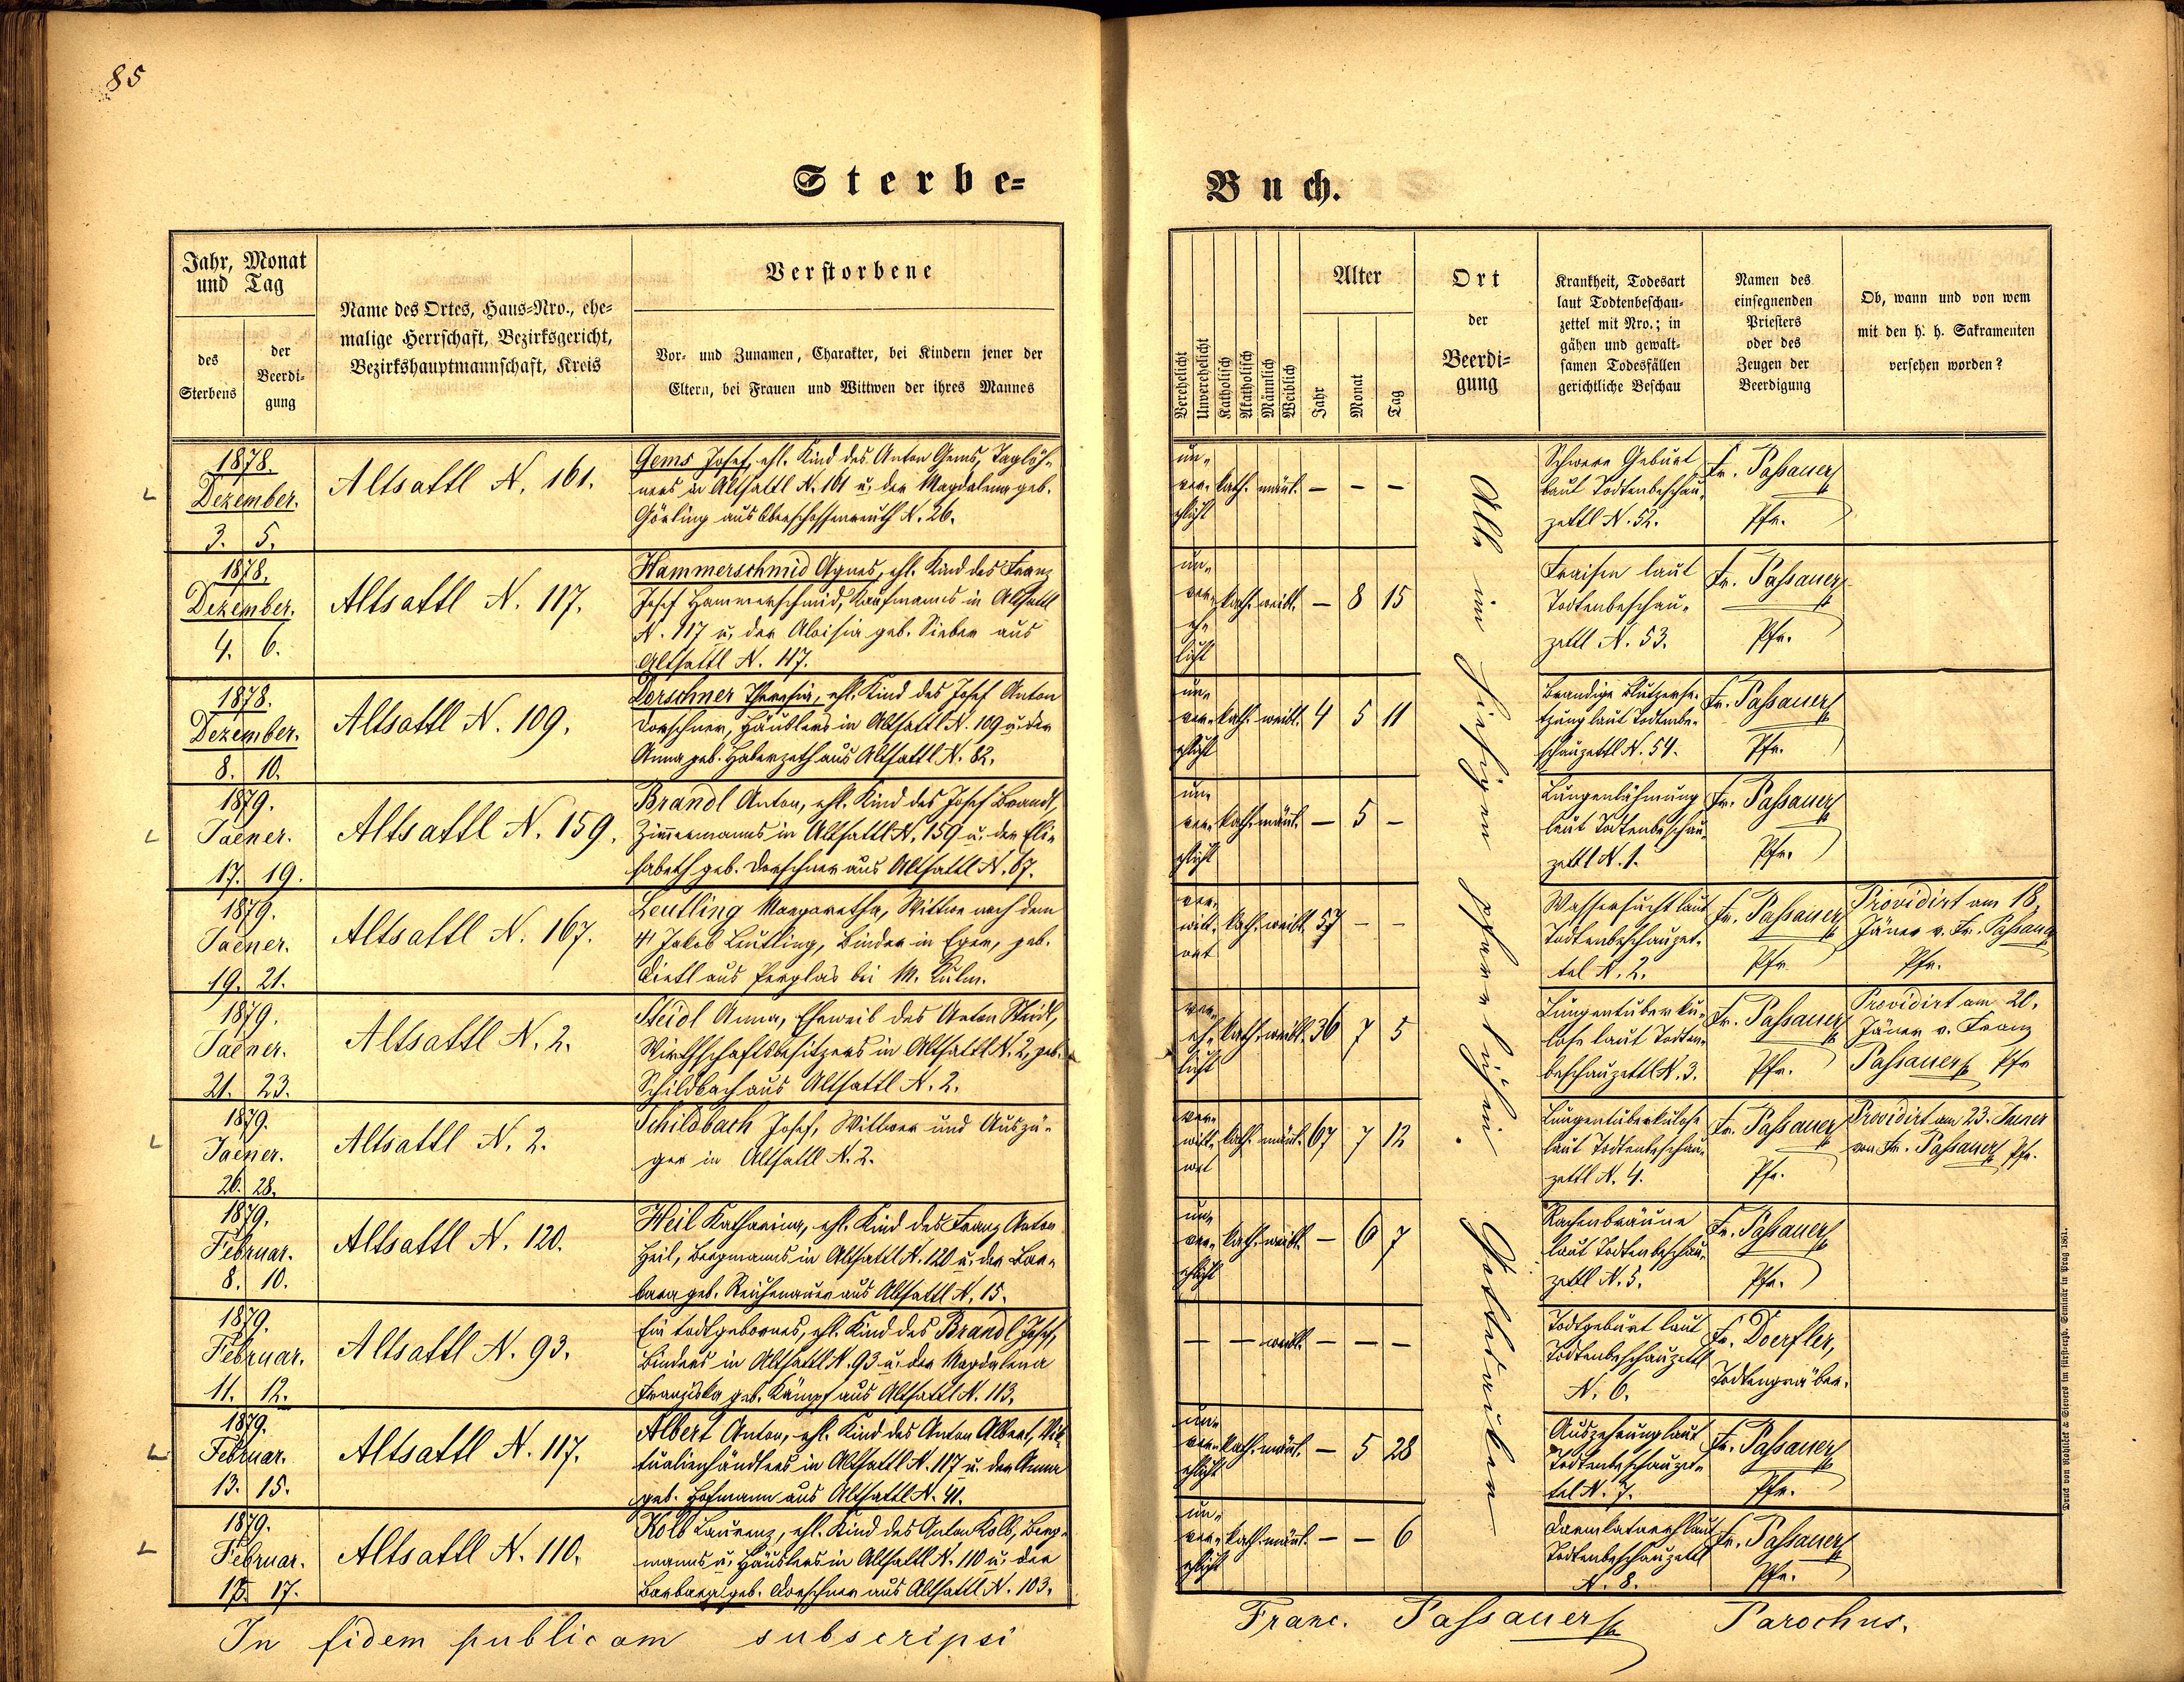 85
Sterbe=
Buch.
Jahr, Monat
und Tag
des
Sterbens
der
Beerdi-
gung
Name des Ortes, Haus=Nro., ehe=
malige Herrschaft, Bezirksgericht,
Bezirkshauptmannschaft, Kreis
Verstorbene
Vor- und Zunamen, Charakter, bei Kindern jener der
Eltern, bei Frauen und Wittwen der ihres Mannes
Verehelicht
Unverehelicht
Katholisch
Akatholisch
Männlich
Weiblich
Alter
Jahr
Monat
Tag
Ort
der
Beerdi=
gung
Krankheit, Todesart
laut Todtenbeschau-
zettel mit Nro.; in
gähen und gewalt-
samen Todesfällen
gerichtliche Beschau
Namen des
einsegnenden
Priesters
oder des
Zeugen der
Beerdigung
Ob, wann und von wem
mit den h. h. Sakramenten
versehen worden?
1878.
Dezember.
3. 5.
Altsattl N. 161.
Gems Josef, ehl. Kind des Anton Gems, Taglöh-
ners in Altsattl N. 161 u. der Magdalena geb.
Görling aus Oberschossenreuth N. 26.
un-
ver-
ehlicht
kath. mänl. — — —
Schwere Geburt
laut Todtenbeschau-
zettl N. 52.
Fr. Passauer
Pfr.
1878.
Dezember.
4. 6.
Altsattl N. 117.
Hammerschmid Agnes, ehl. Kind des Franz
Josef Hammerschmid, Kaufmanns in Altsattl
N. 117 u. der Aloisia geb. Sieber aus
Altsattl N. 117.
un-
ver-
eh-
licht
kath. weibl. — 8 15
Fraisen laut
Todtenbeschau-
zettl N. 53.
Fr. Passauer
Pfr.
1878.
Dezember.
8. 10.
Altsattl N. 109.
Dorschner Theresia, ehl. Kind des Josef Anton
Dorschner, Häuslers in Altsattl N. 109 u. der
Anna geb. Haberzeth aus Altsattl N. 82.
un-
ver-
ehlicht
kath. weibl. 4 5 11
Brandige Blutzerse-
tzung laut Todtenbe-
schauzettl N. 54.
Fr. Passauer
Pfr.
1879.
Jaener.
17. 19.
Altsattl N. 159.
Brandl Anton, ehl. Kind des Josef Brandl,
Zimmermanns in Altsattl N. 159 u. der Eli-
sabeth geb. Dorschner aus Altsattl N. 67.
un-
ver-
ehlicht
kath. mänl. — 5 —
Lungenlähmung
laut Todtenbeschau-
zettl N. 1.
Fr. Passauer
Pfr.
1879.
Jaener.
19. 21.
Altsattl N. 167.
Leutling Margaretha, Wittwe nach dem
Jakob Leutling, Binder in Eger, geb.
Dietl aus Perglas bei M. Kulm.
ver-
witt-
wet
kath. weibl. 57 — —
Wassersucht laut
Todtenbeschauzet-
tel N. 2.
Fr. Passauer
Pfr.
Providirt am 18.
Jäner v. Fr. Passauer
Pfr.
1879.
Jaener.
21. 23.
Altsattl N. 2.
Steidl Anna, Eheweib des Anton Steidl,
Wirthschaftsbesitzers in Altsattl N. 2, geb.
Schildbach aus Altsattl N. 2.
ver-
eh-
licht
kath. weibl. 36 7 5
Lungentuberku-
lose laut Todten-
beschauzettl N. 3.
Fr. Passauer
Pfr.
Providirt am 20.
Jäner v. Franz
Passauer Pfr
1879.
Jaener.
26. 28.
Altsattl N. 2.
Schildbach Josef, Wittwer und Auszü-
ger in Altsattl N. 2.
ver-
witt-
wet
kath. mänl. 67 7 12
Lungentuberkulose
laut Todtenbeschau-
zettl N. 4.
Fr. Passauer
Pfr.
Providirt am 23. Jaener
von Fr. Passauer Pfr.
1879.
Februar.
8. 10.
Altsattl N. 120.
Heil Katharina, ehl. Kind des Franz Anton
Heil, Bergmanns in Altsattl N. 120 u. der Bar-
bara geb. Reichenauer aus Altsattl N. 15.
un-
ver-
ehlicht
kath. weibl. — 6 7
Rachenbräune
laut Todtenbeschau-
zettl N. 5.
Fr. Passauer
Pfr.
1879.
Februar.
11. 12.
Altsattl N. 93.
Ein todtgebornes, ehl. Kind des Brandl Josef,
Binders in Altsattl N. 93 u. der Magdalena
Franziska geb. Kämpf aus Altsattl N. 113.
— — weibl. — — —
Todtgeburt laut
Todtenbeschauzettl
N. 6.
Fr. Doerfler,
Todtengräber.
1879.
Februar.
13. 15.
Altsattl N. 117.
Albert Anton, ehl. Kind des Anton Albert, Vik-
tualienhändlers in Altsattl N. 117 u. der Anna
geb. Hofmann aus Altsattl N. 41.
un-
ver-
ehlicht
kath. mänl. — 5 28
Auszehrung laut
Todtenbeschauzet-
tel N. 7.
Fr. Passauer
Pfr.
1879.
Februar.
15. 17.
Altsattl N. 110.
Kolb Laurenz, ehl. Kind des Anton Kolb, Berg-
manns u. Häuslers in Altsattl N. 110 u. der
Barbara geb. Dorschner aus Altsattl N. 103.
un-
ver-
ehlicht
kath. mänl. — — 6
Darmkatarrh laut
Todtenbeschauzettl
N. 8.
Fr. Passauer
Pfr.
Alle im hiesigen pfarrlichen Gottesacker
In fidem publicam subscripsi
Franc. Passauer Parochus.